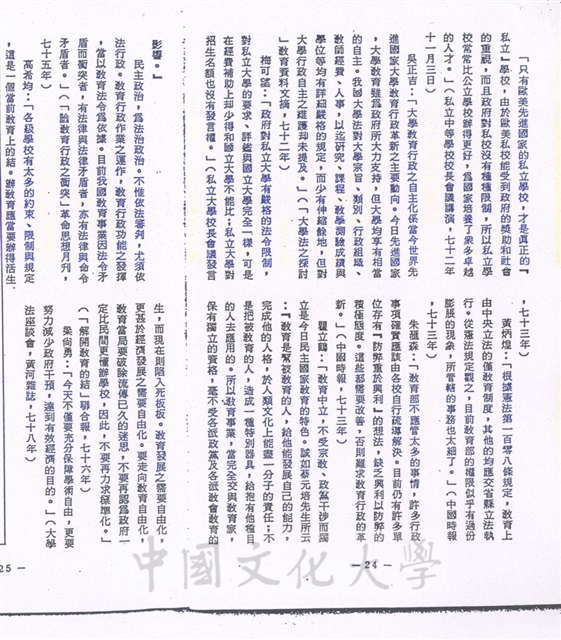 「只有歐美先進國家的私立學校,才是真正的『
私立』學校,由於歐美私校能受到政府的獎助和社會
的重視,而且政府對私校沒有種種限制,所以私立學
校常常比公立學校辦得更好,爲國家培養了衆多卓越
的人才。」(私立中等學校校長會議講演,七十二年
十一月三日)
吳正吉:「大學教育行政之自主化係當今世界先
進國家大學教育行政革新之主要動向。今日先進國家
,大學教育雖爲政府所大力支持,但大學均享有相當
的自主。我國大學法對大學宗旨、類別、行政組織、
教師經費、人事,以迄研究、課程、教學測驗成績與
學位等均有詳細嚴格的規定,而少有伸縮餘地,但對
大學行政自主之維護却未提及。」(「大學法之探討
」教育資料文摘,七十二年)
梅可望:「政府對私立大學有嚴格的法令限制,
對私立大學的要求、評鑑與國立大學完全一樣,可是
在經費補助上却少得和國立大學不能比;私立大學對
招生名額也沒有發言權。」(私立大學校長會議發言
,七十三年)
黃炳煌:「根據憲法第一百零八條規定,教育上
由中央立法的僅教育制度,其他的均應交省縣立法執
行。從憲法規定觀之,目前教育部的權限似乎有過份
膨脹的現象,所管轄的事務也太細了。」(中國時報
,七十三年)
朱滙森:「教育部不應管太多的事情,許多行政
事項確實應該由各校自行疏導解決。目前仍有許多單
位存有『防弊重於興利』的想法,缺乏興利以防弊的
積極態度。這些都需要改善,否則難求教育行政的革
新。」(中國時報,七十三年)
瞿立鶴:「教育中立,不受宗教、政黨干涉而獨
立是今日民主國家教育的特色。誠如蔡元培先生所云
:『教育是幫被教育的人,給他能發展自己的能力,
完成他的人格,於人類文化上能盡一分子的責任;不
是把被教育的人,造成一種特別器具,給抱有他種目
的人去應用的。所以教育事業,當完全交與教育家,
保有獨立的資格,毫不受各派政黨及各派教會教育的
— 24 —
影響。』
民主政治,爲法治政治。不惟依法審判,尤須依
法行政。教育行政作業之運作,教育行政功能之發揮
,當以教育法令爲依據。目前我國教育事業因法令矛
盾而衝突者,有法律與法律矛盾者,亦有法律與命令
矛盾者。」(「論教育行政之衝突」革命思想月刊,
七十五年)
高希均:「各級學校有太多的約束、限制與規定
,這是一個當前教育上的結。辦教育應當要辦得活生
生,而現在則陷入死板板。教育發展之需要自由化,
更甚於經濟發展之需要自由化。要走向教育自由化,
教育當局要破除流傳已久的迷思,不要再認爲政府一
定比民間更懂辦學校,因此,不要再力求標準化。」
(「解開教育的結」聯合報,七十六年)
梁尚勇:「今天不僅要充分保障學術自由,更要
努力減少政府干預,達到有效經濟的目的。」(大學
法座談會,黃河雜誌,七十八年)
25 —
中國文化大學